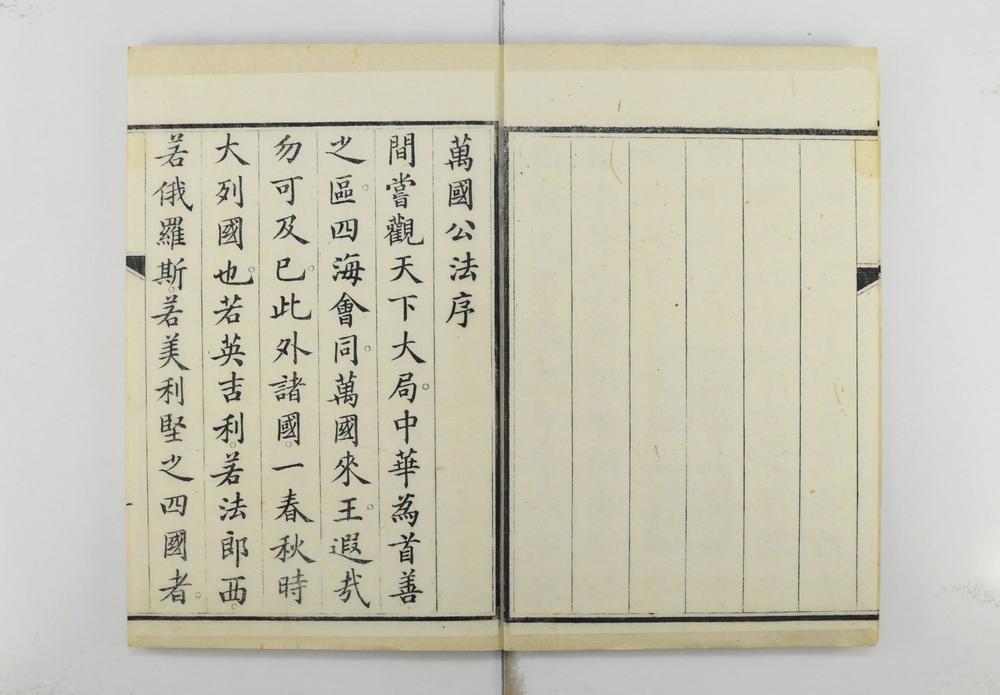 萬國公法序
間嘗觀天下大局。中華為首善
之區。四海會同。萬國來王。遐哉
勿可及已。此外諸國。一春秋時
大列國也。若英吉利。若法郎西。
若俄羅斯。若美利堅之四國者。